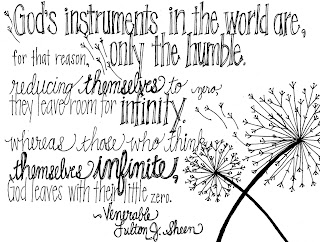 God's instruments in the world are,
for that reason, only the humble.
reducing themselves to zero,
they leave room for infinity.
whereas those who think
themselves infinite,
God leaves with their little zero.
~Venerable
Fulton J. Sheen